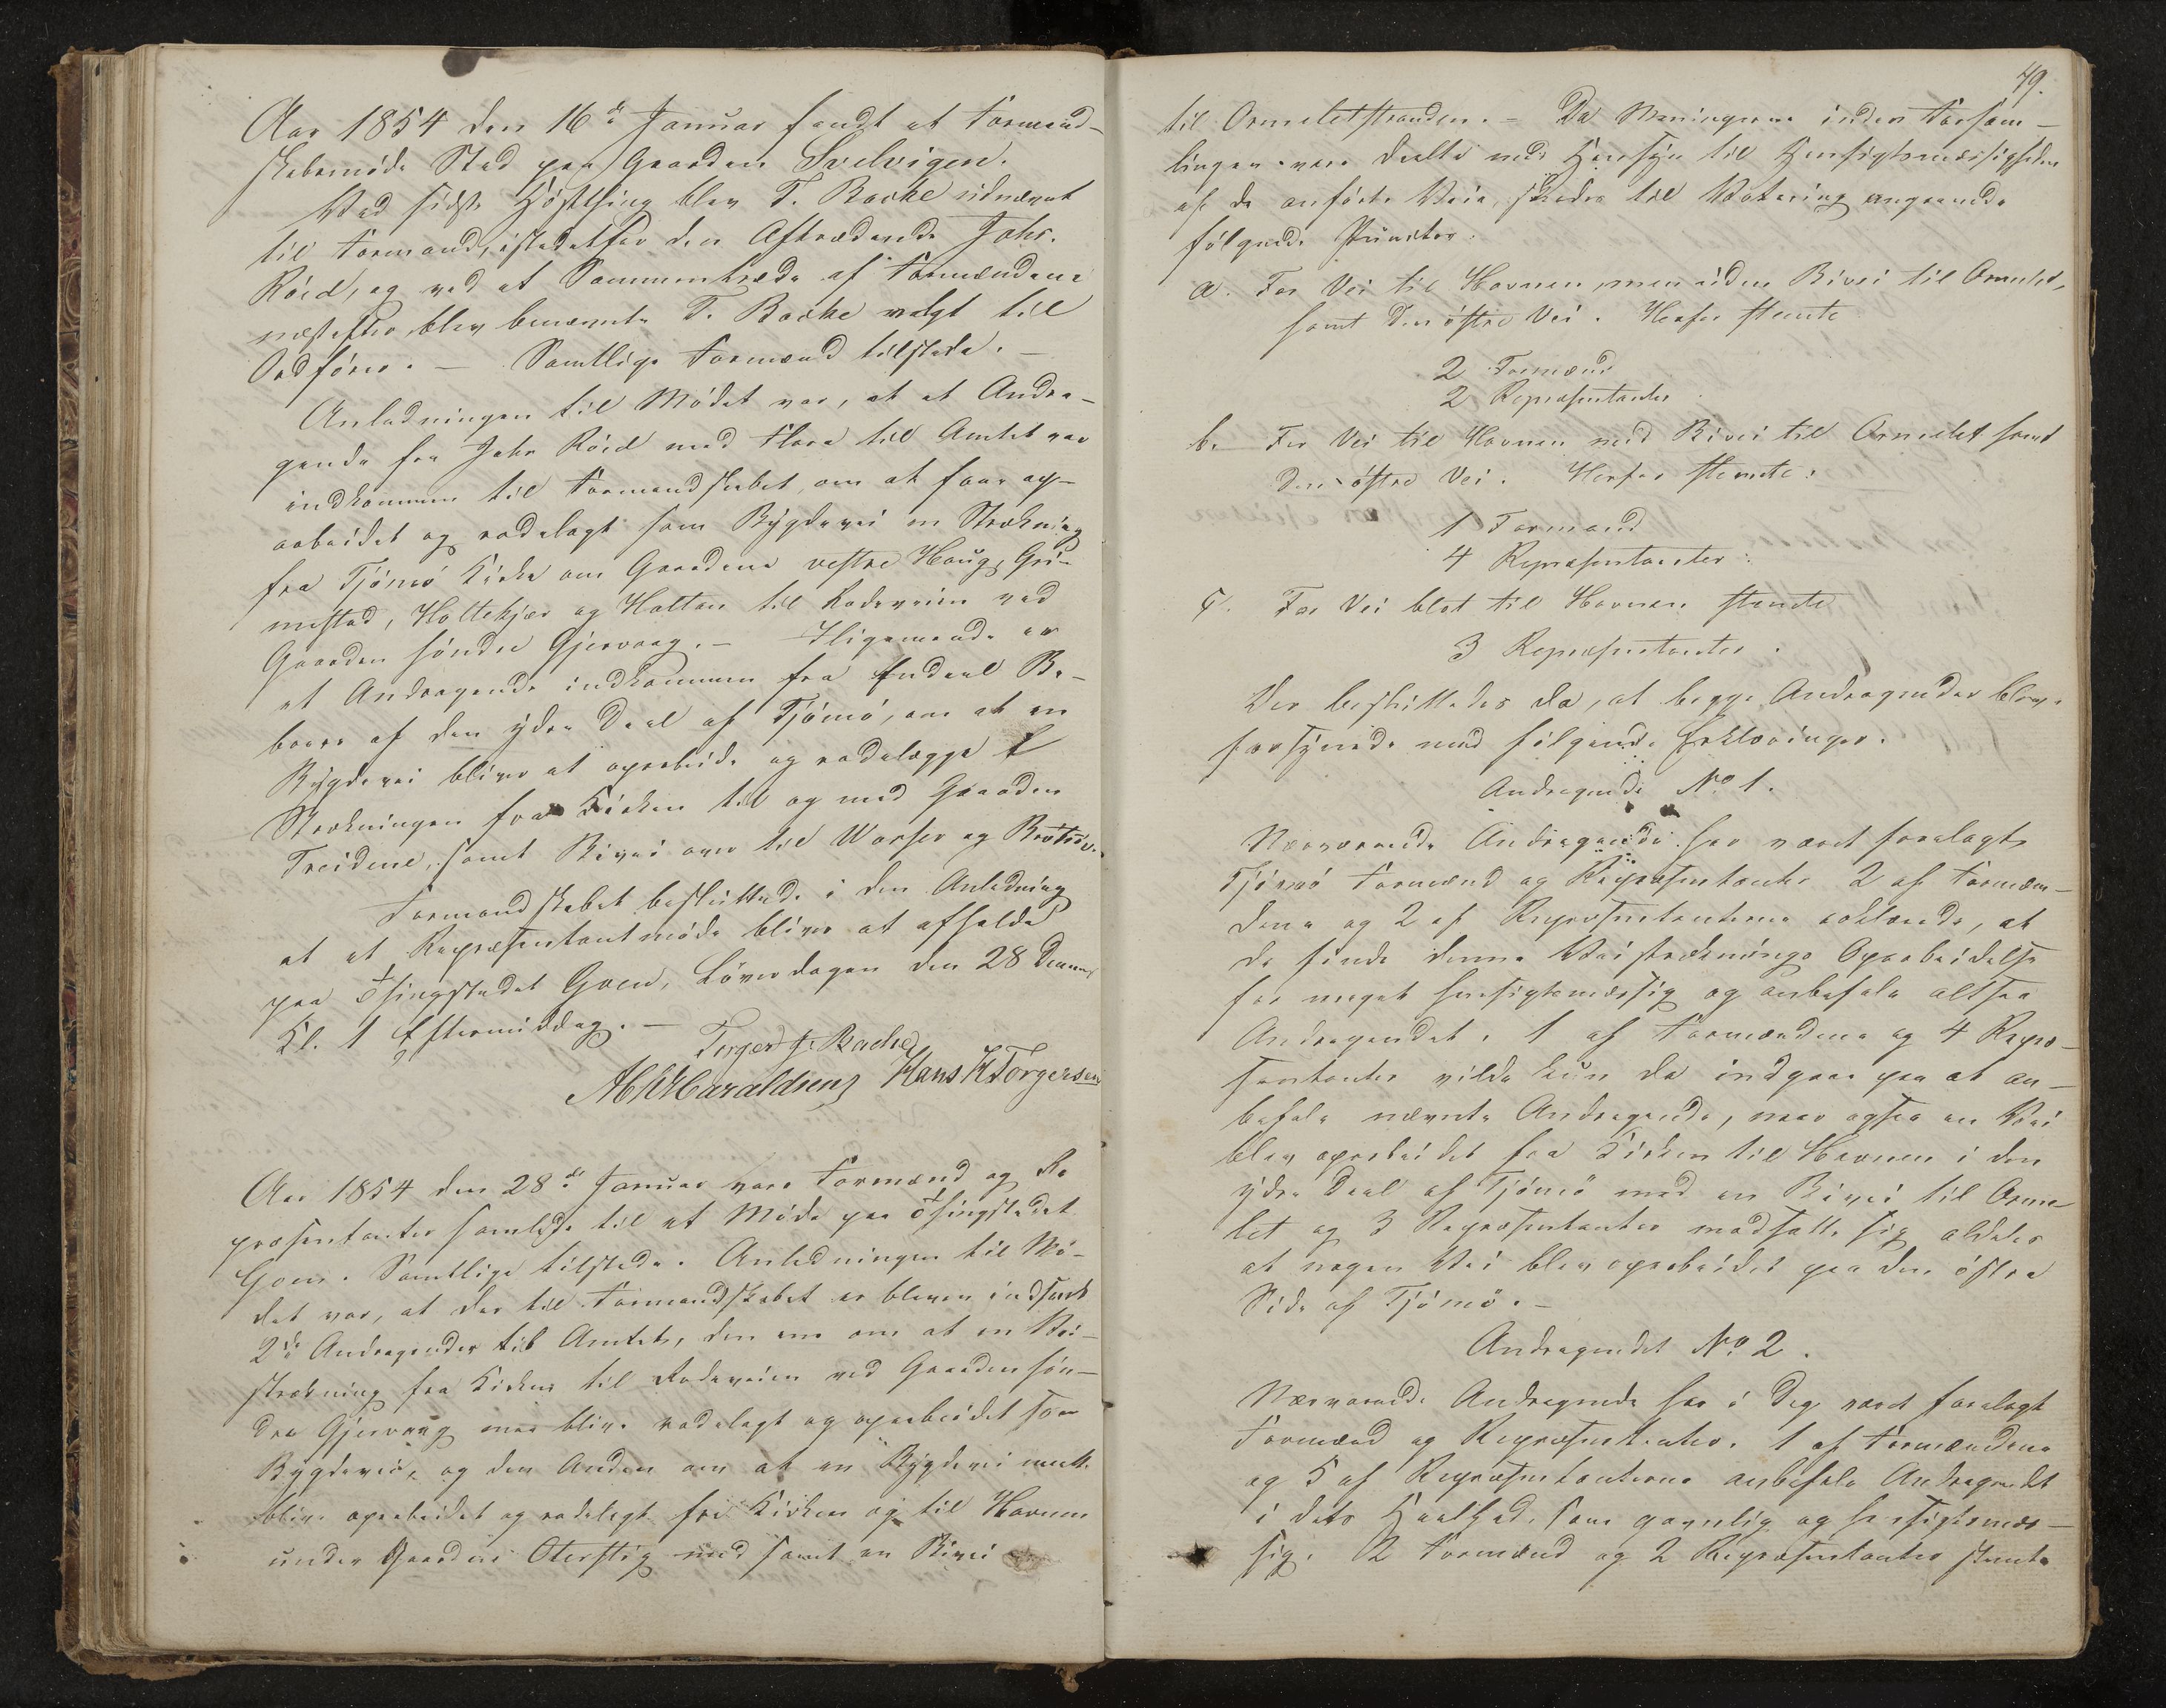 Aar 1854 den 16de Januar fandt et Formand-
skabsmøde Sted paa Gaarden Svelvigen.
Ved sidste Høstthing blev T. Bache udnævnt
til Formand, istedetfor den Aftrædende Johs.
Røed, og ved et Sammentræde af Formændene
næstefter blev benævnte T. Bache valgt til
Ordfører. — Samtlige Formænd tilstede. —
Anledningen til Mødet var, at et Andra-
gende fra Johs Røed med Flere til Amtet var
indkommen til Formandskabet, om at faae op-
arbeidet og rodelagt som Bygdevei en Strækning
fra Tjömö Kirke om Gaardene vestre Haug, Gri-
mestad, Holtekjær og Holtan til Rodeveien ved
Gaarden søndre Gjervaag. — Iligemaade er
et Andragende indkommen fra Endeel Be-
boere af den ydre Deel af Tjömö, om at en
Bygdevei bliver at oparbeide og rodelægge
Strækningen fra Kirken til og med Gaarden
Treidene, samt Bivei over til Worser og Brøtsö.
Formandskabet besluttede i den Anledning
at et Repræsentantmøde bliver at afholde
paa Thingstedet Goen, Løverdagen den 28 Dennes
Kl. 1 Eftermiddag. —
Torger J. Bache
A H Haraldsen Hans H Torgersen
Aar 1854 den 28de Januar vare Formænd og Re
præsentanter samlede til et Møde paa Thingstedet
Goen. Samtlige tilstede. Anledningen til Mø-
det var, at der til Formandskabet er bleven indsendt
2de Andragender til Amtet, den ene om at en Vei-
strækning fra Kirken til Rodeveien ved Gaarden søn-
dre Gjervaag maa blive rodelagt og oparbeidet som
Bygdevei, og den Anden om at en Bygdevei maatte
blive oparbeidet og rodelagt fra Kirken og til Havnen
under Gaarden Oterstig med samt en Bivei
79.
til Ormeletstranden. — Da Meningerne inden Forsam-
lingen vare deelte med Hensyn til Hensigtsmæssigheden
af de anførte Veie, skredes til Votering angaaende
følgende Puncter.
a. For Vei til Havnen, men uden Bivei til Ormelet,
samt den østre Vei. Herfor stemte
2 Formænd
2 Repræsentanter
b. For Vei til Havnen med Bivei til Ormelet samt
den østre Vei. Herfor stemte:
1 Formand
4 Repræsentanter
c. For Vei blot til Havnen stemte
3 Repræsentanter.
Der besluttedes da, at begge Andragender bleve
forsynede med følgende Erklæringer.
Andragende No 1.
Nærværende Andragende har været forelagt
Tjömö Formænd og Repræsentanter 2 af Formæn-
dene og 2 af Repræsentanterne erklærede, at
de finde denne Veistræknings Oparbeidelse
for meget hensigtsmæssig og anbefale altsaa
Andragendet. 1 af Formændene og 4 Repræ-
sentanter vilde kun da indgaae paa at an-
befale nævnte Andragende, naar ogsaa en Vei
blev oparbeidet fra Kirken til Havnen i den
ydre Deel af Tjömö med en Bivei til Orme-
let og 3 Repræsentanter modsatte sig aldeles
at nogen Vei blev oparbeidet paa den østre
Side af Tjömö. —
Andragendet No 2.
Nærværende Andragende har i Dag været forelagt
Formænd og Repræsentanter. 1 af Formændene
og 5 af Repræsentanterne anbefale Andragendet
i dets Heelhed, som gavnlig og hensigtsmæs-
sig. 2 Formænd og 2 Repræsentanter stemte